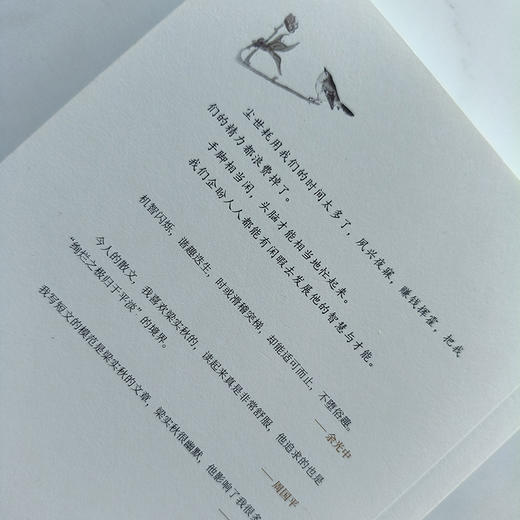 尘世耗用我们的时间太多了，夙兴夜寐，赚钱挥霍，把我
们的精力都浪费掉了。
手脚相当闲，头脑才能相当地忙起来。
我们企盼人人都能有闲暇去发展他的智慧与才能。
机智闪烁，谐趣迭生，时或滑稽突梯，却能适可而止，不堕俗趣。
——余光中
今人的散文，我喜欢梁实秋的，读起来真是非常舒服，他追求的也是
“绚烂之极归于平淡”的境界。
——周国平
我写短文的模范是梁实秋的文章，梁实秋很幽默，他影响了我很多